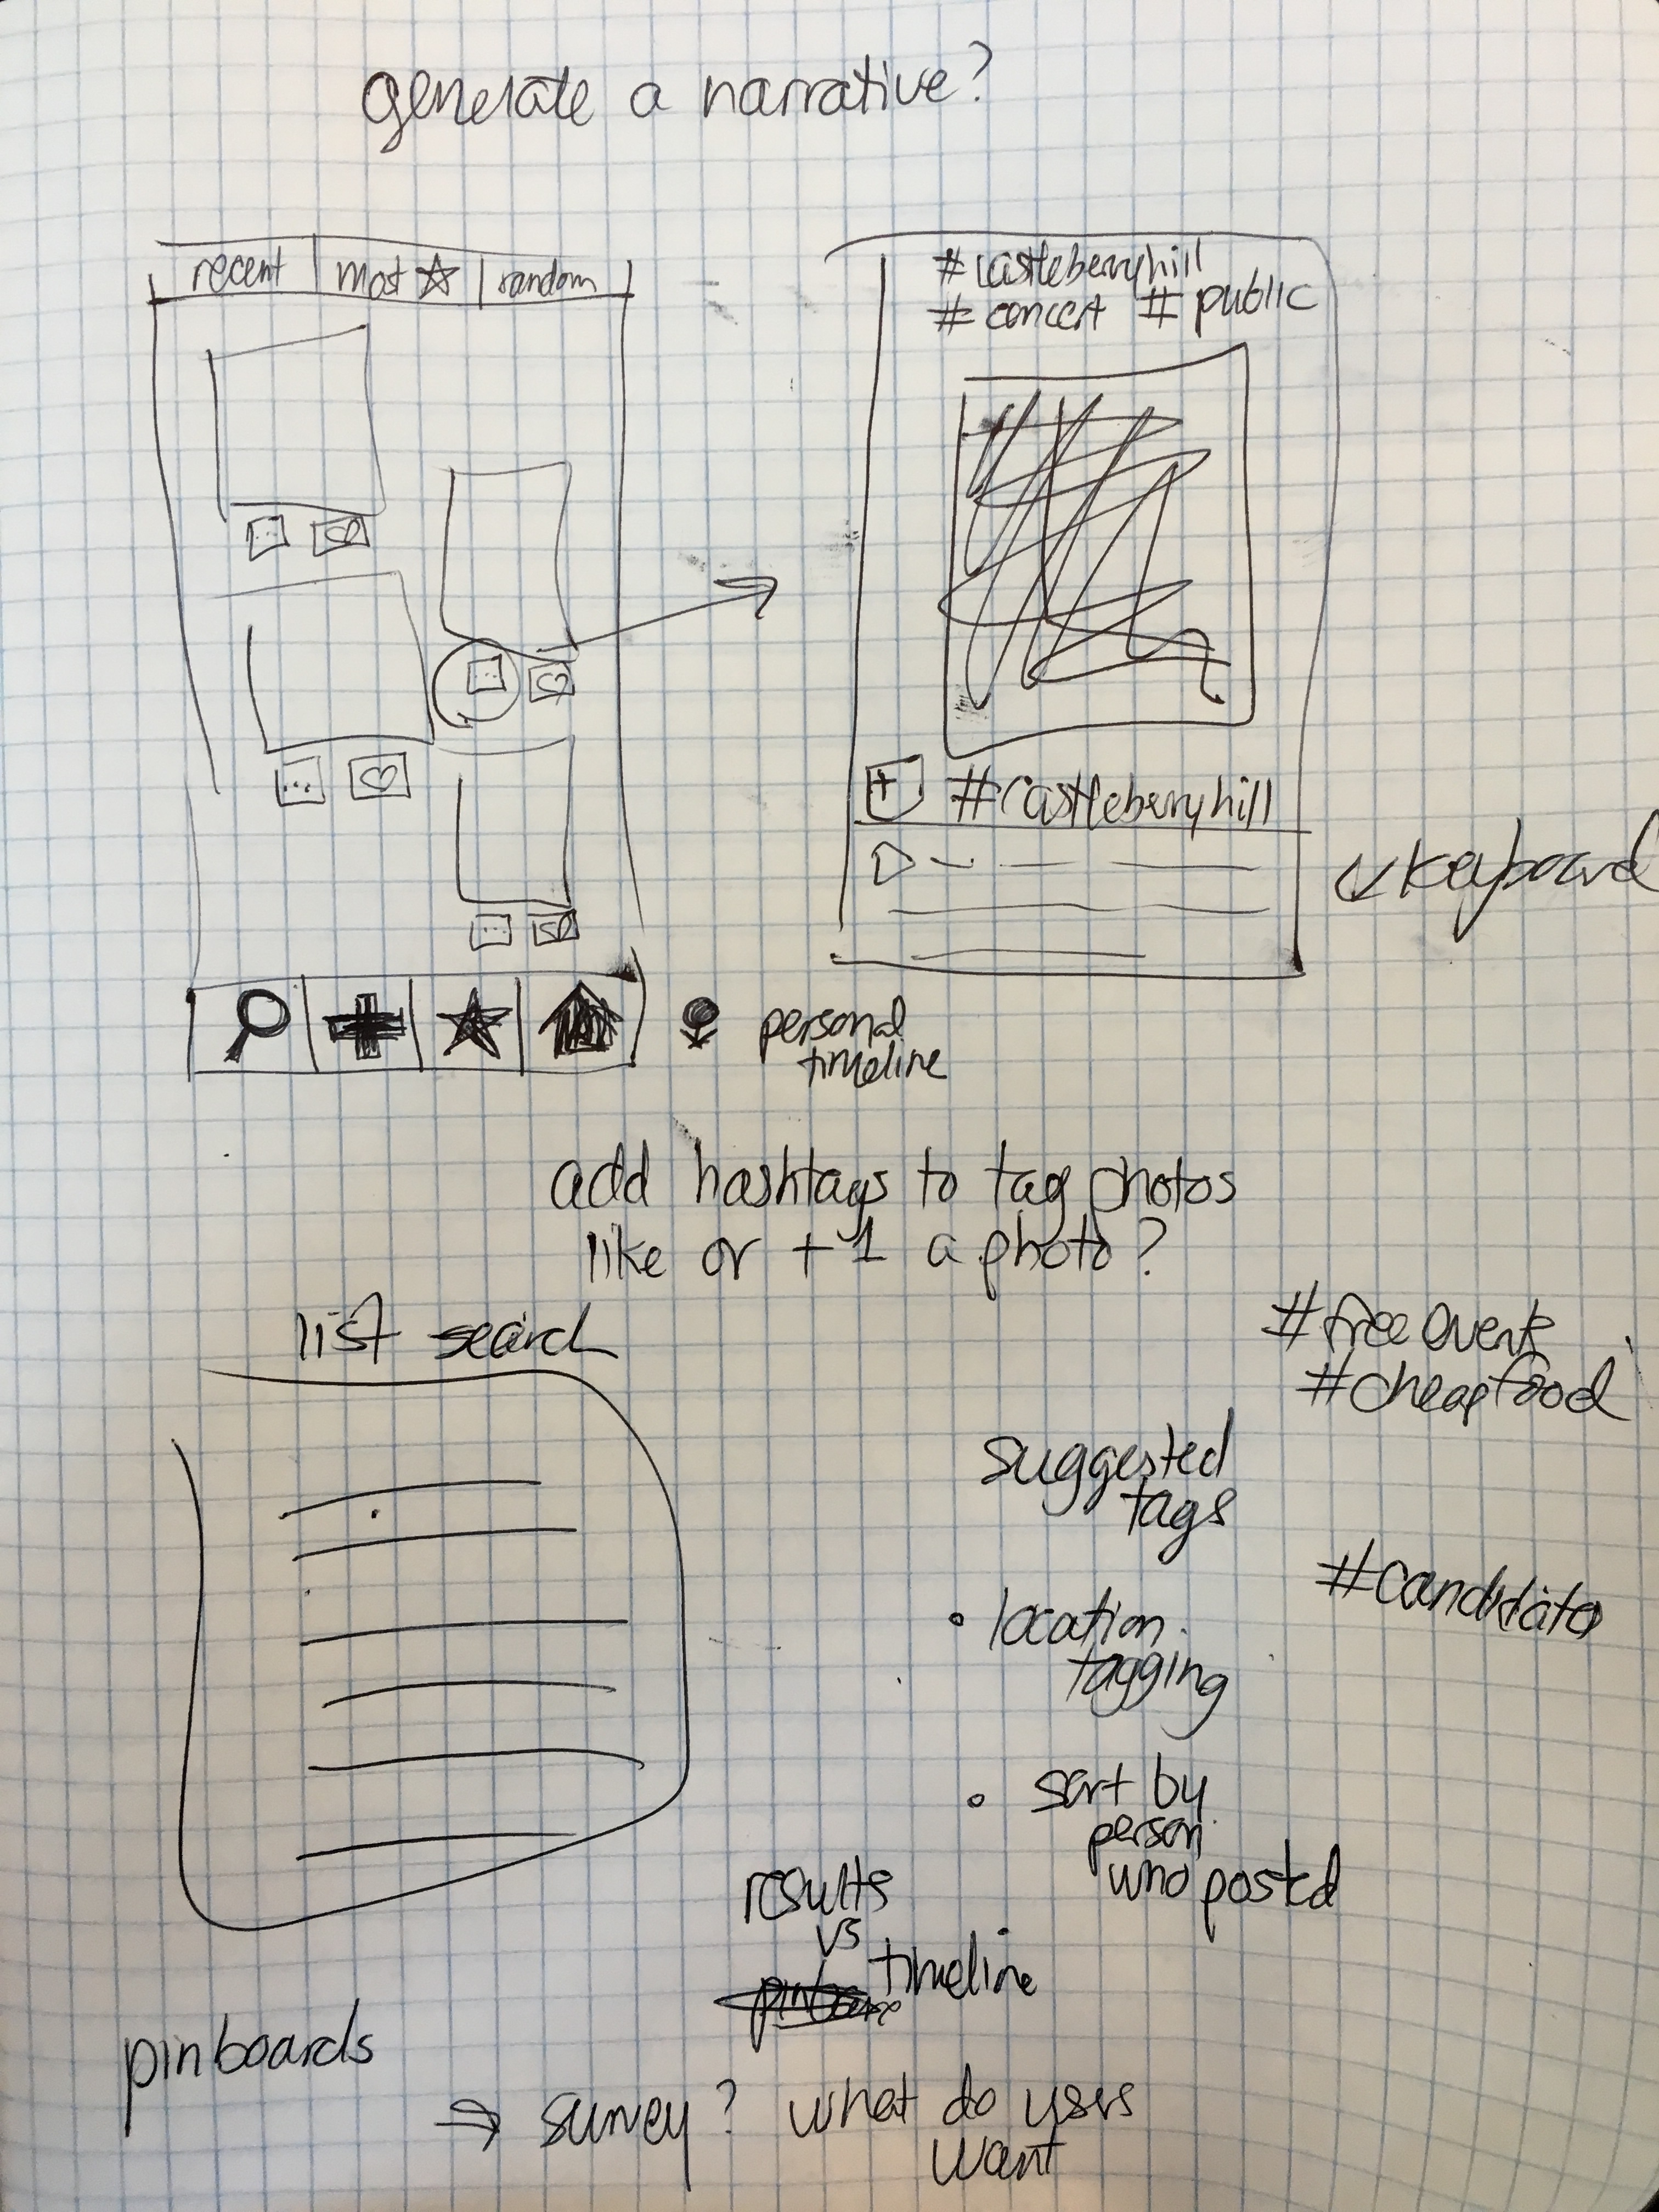 generate a narrative?
recent | most ☆ | random
#castleberryhill
#concert #public
+ #castleberryhill
keyboard
personal
timeline
add hashtags to tag photos
like or +1 a photo?
list search
#freeevent
#cheapfood
suggested
tags
#candidato
• location
tagging
• sort by
person
who postd
results
vs
timeline
pinboards
⇒ survey? what do users
want